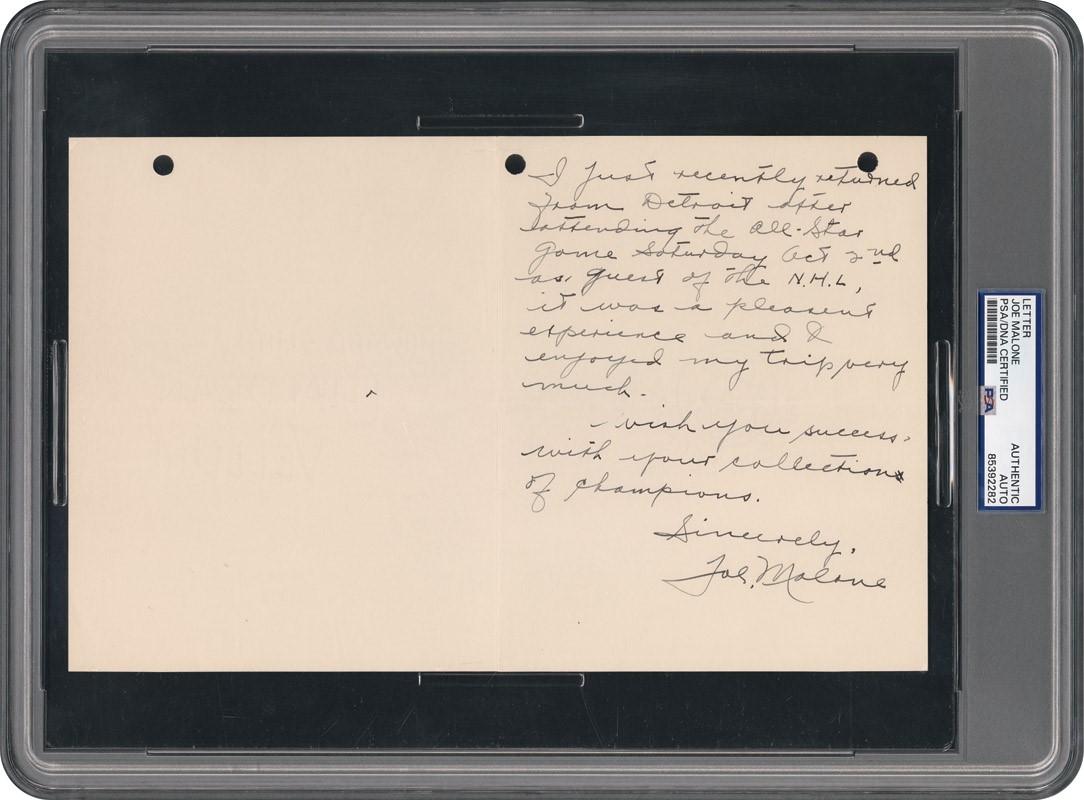 I just recently returned
from Detroit after
attending the All-Star
Game Saturday Oct 2nd
as guest of the N.H.L,
it was a pleasent
experience and I
enjoyed my trip very
much.
I wish you success
with your collections
of champions.
Sincerely,
Joe, Malone
LETTER
JOE MALONE
PSA/DNA CERTIFIED
PSA
AUTHENTIC
AUTO
85392282